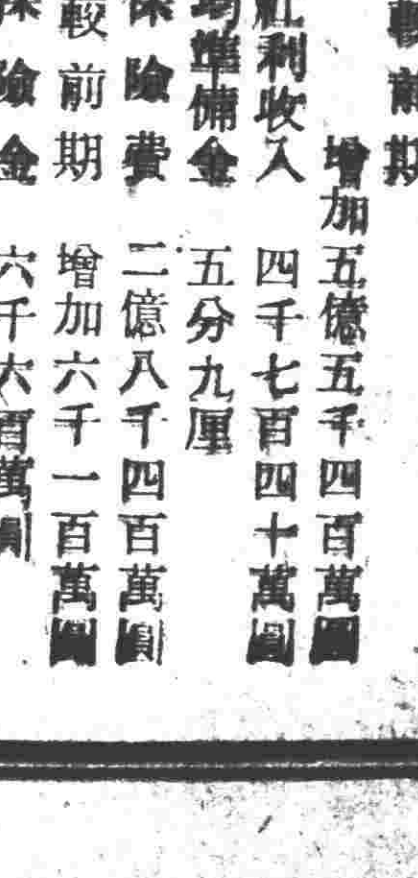 較前期
增加五億五千四百萬圓
紅利收入 四千七百四十萬圓
均準備金 五分九厘
保險費 二億八千四百萬圓
較前期 增加六千一百萬圓
保險金 六千六百萬圓